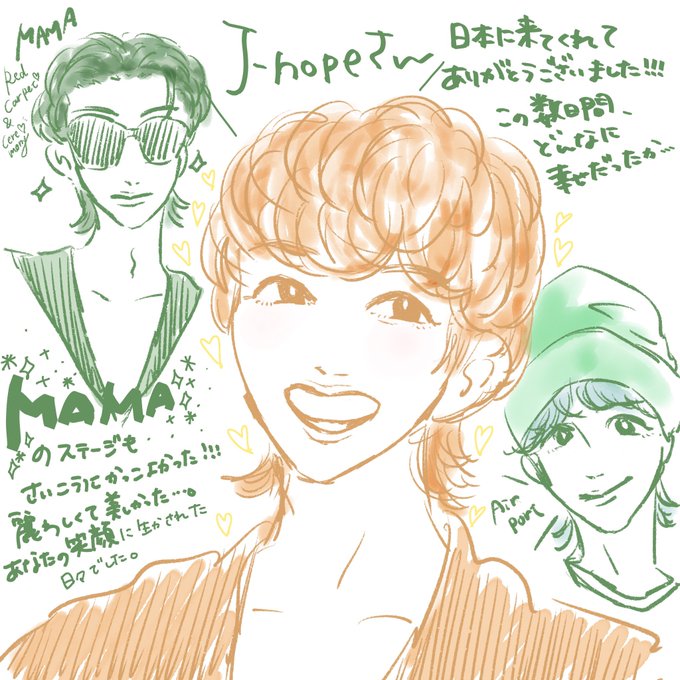 MAMA
Red
Carpet
&
Cere
mony
J-hopeさん
日本に来てくれて
ありがとうございました!!!
この数日間、
どんなに
幸せだったか…
MAMA
のステージも
さいこうにかっこよかった!!!
麗わしくて美しかった…。
あなたの笑顔に生かされた
日々でした。
Air
port